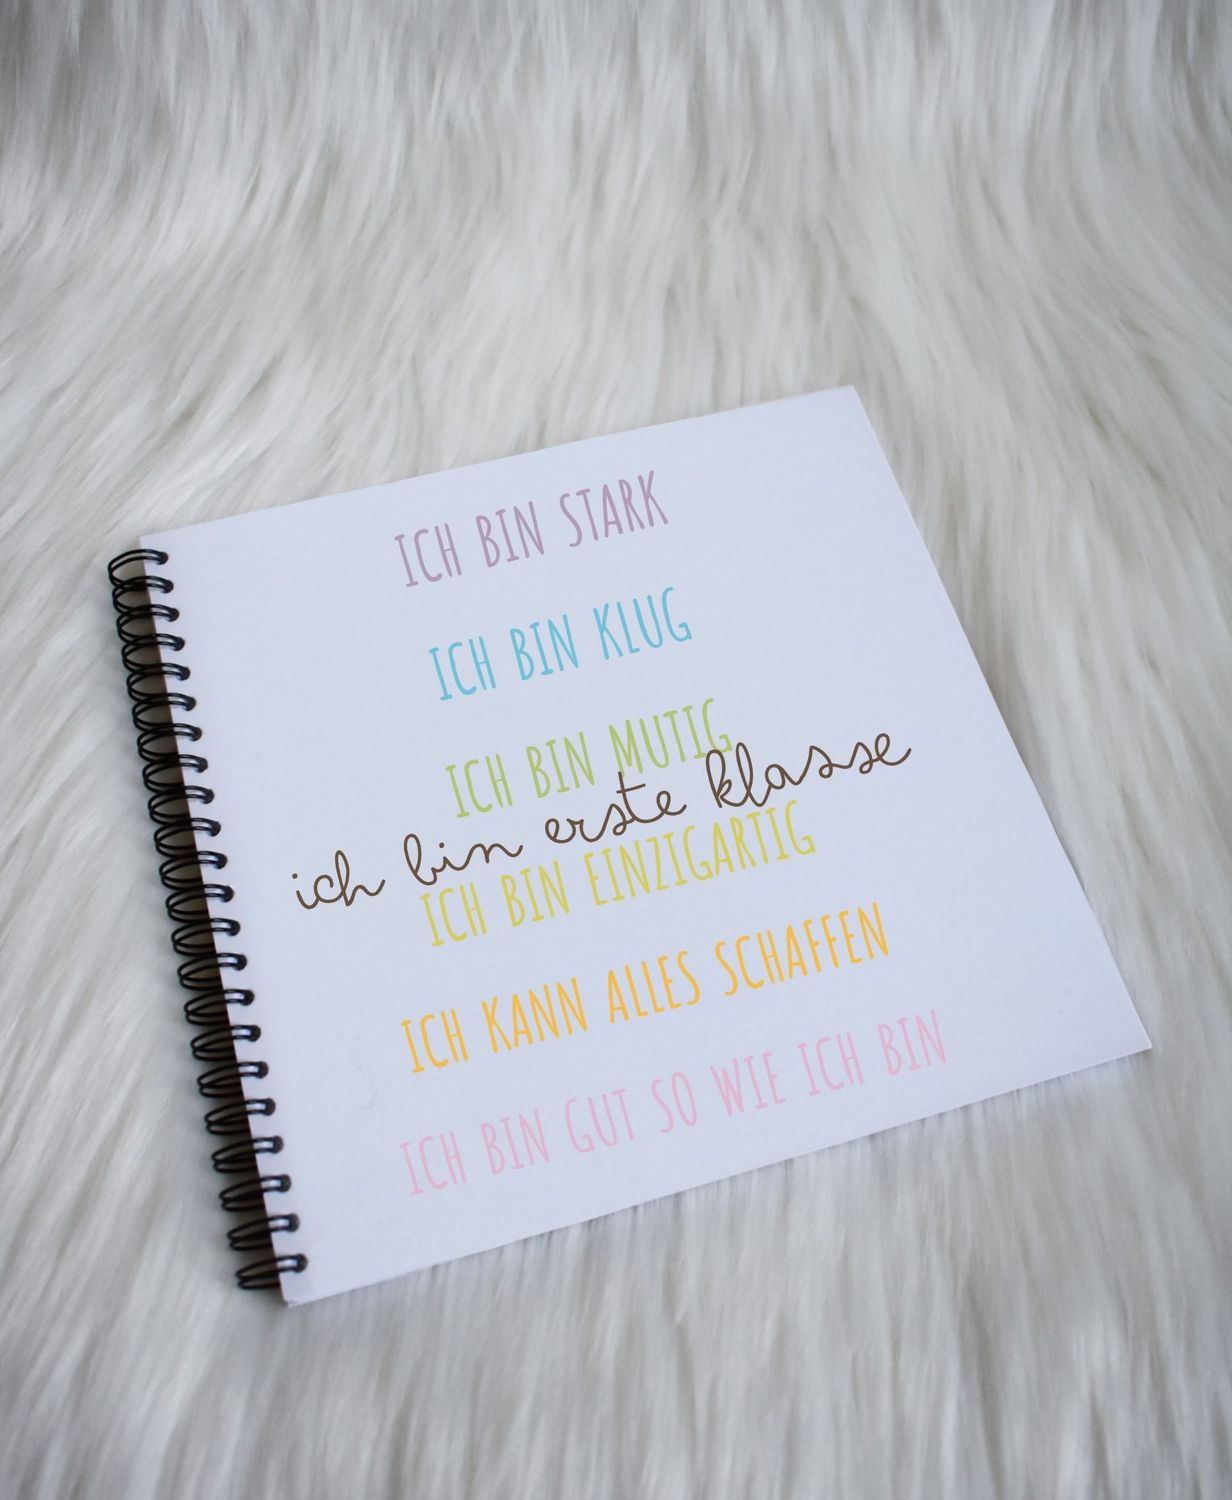 ICH BIN STARK
ICH BIN KLUG
ICH BIN MUTIG
ich bin erste klasse
ICH BIN EINZIGARTIG
ICH KANN ALLES SCHAFFEN
ICH BIN GUT SO WIE ICH BIN